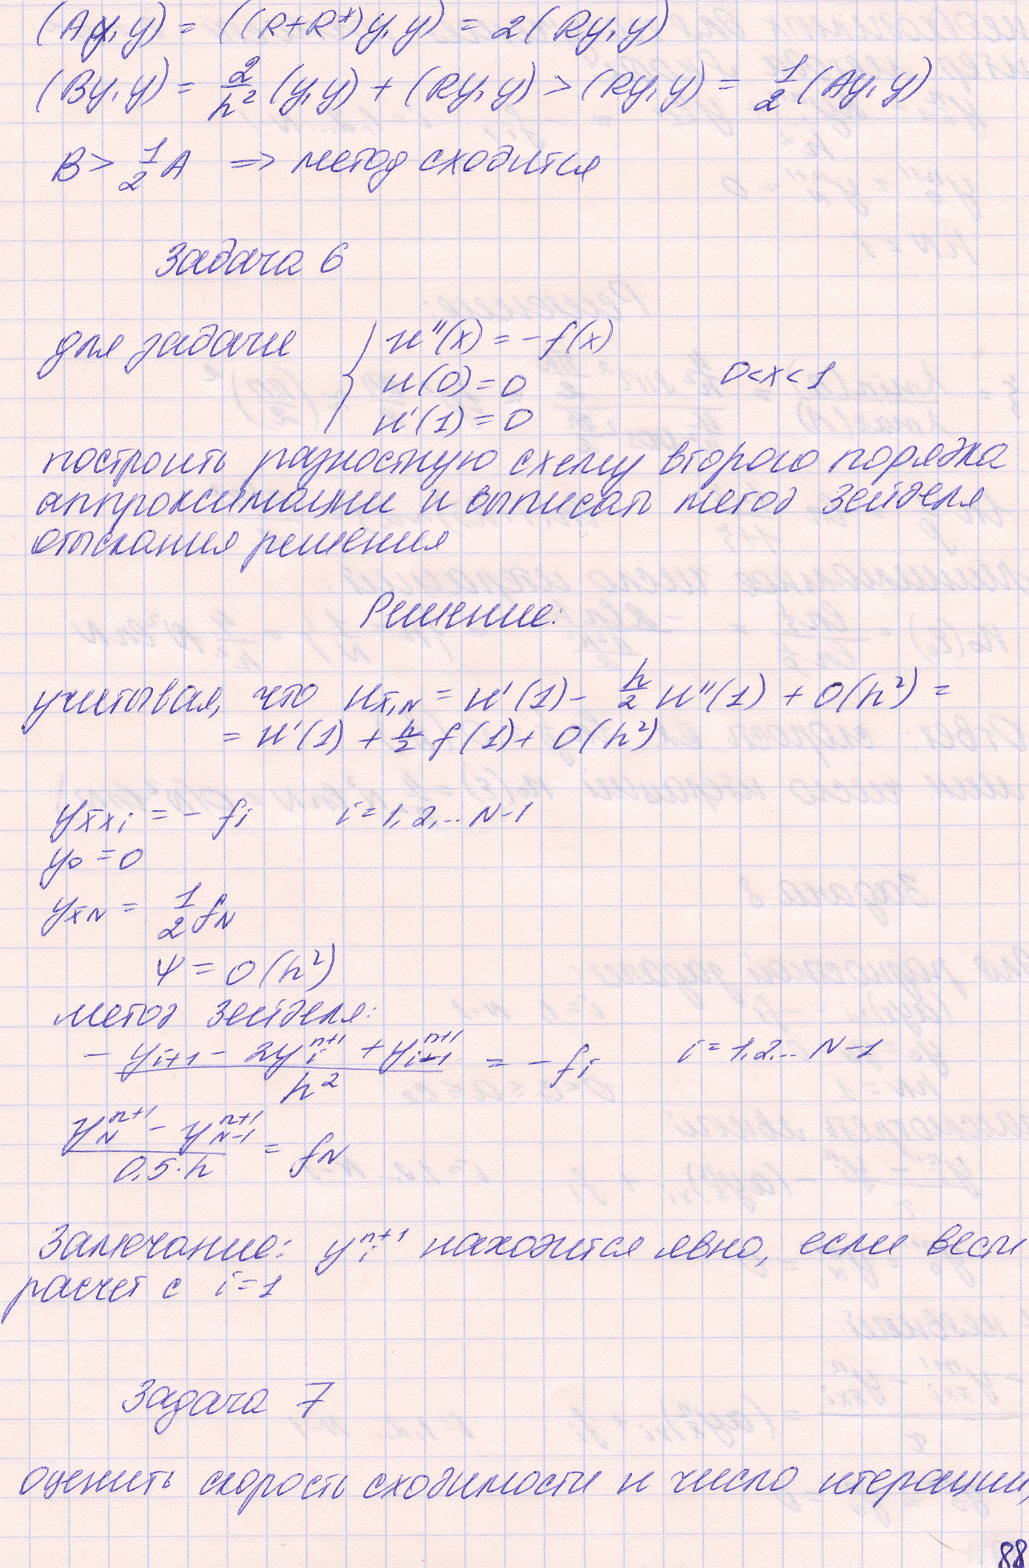 (Ay, y) = ((R+R*)y, y) = 2(Ry, y)
(By, y) = 2/h² (y, y) + (Ry, y) > (Ry, y) = 1/2 (Ay, y)
B > 1/2 A => метод сходится
Задача 6
для задачи { u''(x) = -f(x)
u(0) = 0 0<x<1
u'(1) = 0
построить разностную схему второго порядка
аппроксимации и выписать метод Зейделя
отыскания решения
Решение:
учитывая, что u_x̄,N = u'(1) - h/2 u''(1) + O(h²) =
= u'(1) + h/2 f(1) + O(h²)
y_x̄x i = - f_i i = 1, 2, .. N-1
y_0 = 0
y_x̄N = 1/2 f_N
Ψ = O(h²)
метод Зейделя:
- (y_{i+1} - 2y_i^{n+1} + y_{i-1}^{n+1}) / h² = - f_i i = 1, 2 ... N-1
(y_N^{n+1} - y_{N-1}^{n+1}) / (0,5·h) = f_N
Замечание: y_i^{n+1} находится явно, если вести
расчет с i = 1
Задача 7
оценить скорость сходимости и число итераций,
88